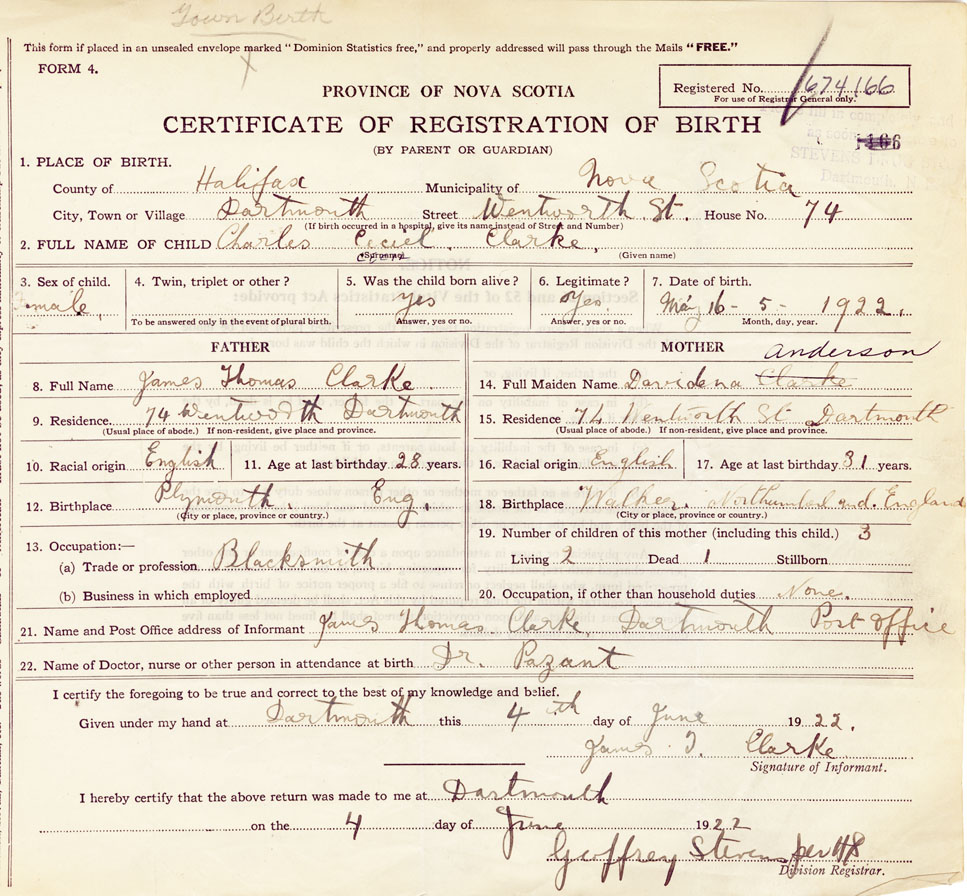 Town Birth
This form if placed in an unsealed envelope marked "Dominion Statistics free," and properly addressed will pass through the Mails "FREE."
FORM 4.
Registered No. 674166
For use of Registrar General only.
PROVINCE OF NOVA SCOTIA
CERTIFICATE OF REGISTRATION OF BIRTH
(BY PARENT OR GUARDIAN)
166
STEVENS
Dartmouth, N.
1. PLACE OF BIRTH.
County of Halifax Municipality of Nova Scotia
City, Town or Village Dartmouth Street Wentworth St. House No. 74
(If birth occurred in a hospital, give its name instead of Street and Number)
2. FULL NAME OF CHILD Charles Ceciel. Clarke,
(Surname) (Given name)
3. Sex of child. 4. Twin, triplet or other? 5. Was the child born alive? 6. Legitimate? 7. Date of birth.
male, yes Yes. May 16 - 5 - 1922.
To be answered only in the event of plural birth. Answer, yes or no. Answer, yes or no. Month, day, year.
FATHER
8. Full Name James Thomas Clarke.
9. Residence. 74 Wentworth Dartmouth
(Usual place of abode.) If non-resident, give place and province.
10. Racial origin English 11. Age at last birthday 28 years.
12. Birthplace Plymouth. Eng.
(City or place, province or country.)
13. Occupation:—
(a) Trade or profession Blacksmith
(b) Business in which employed
MOTHER
Anderson
14. Full Maiden Name Davidena Clarke
15. Residence 74 Wentworth St Dartmouth
(Usual place of abode.) If non-resident, give place and province.
16. Racial origin English 17. Age at last birthday 31 years.
18. Birthplace Walker. Northumberland. England
(City or place, province or country.)
19. Number of children of this mother (including this child.) 3
Living 2 Dead 1 Stillborn
20. Occupation, if other than household duties None.
21. Name and Post Office address of Informant James Thomas Clarke, Dartmouth Post Office
22. Name of Doctor, nurse or other person in attendance at birth Dr. Pazant
I certify the foregoing to be true and correct to the best of my knowledge and belief.
Given under my hand at Dartmouth this 4th day of June 1922.
James T. Clarke
Signature of Informant.
I hereby certify that the above return was made to me at Dartmouth
on the 4 day of June 1922
Geoffrey Stevens per HS
Division Registrar.